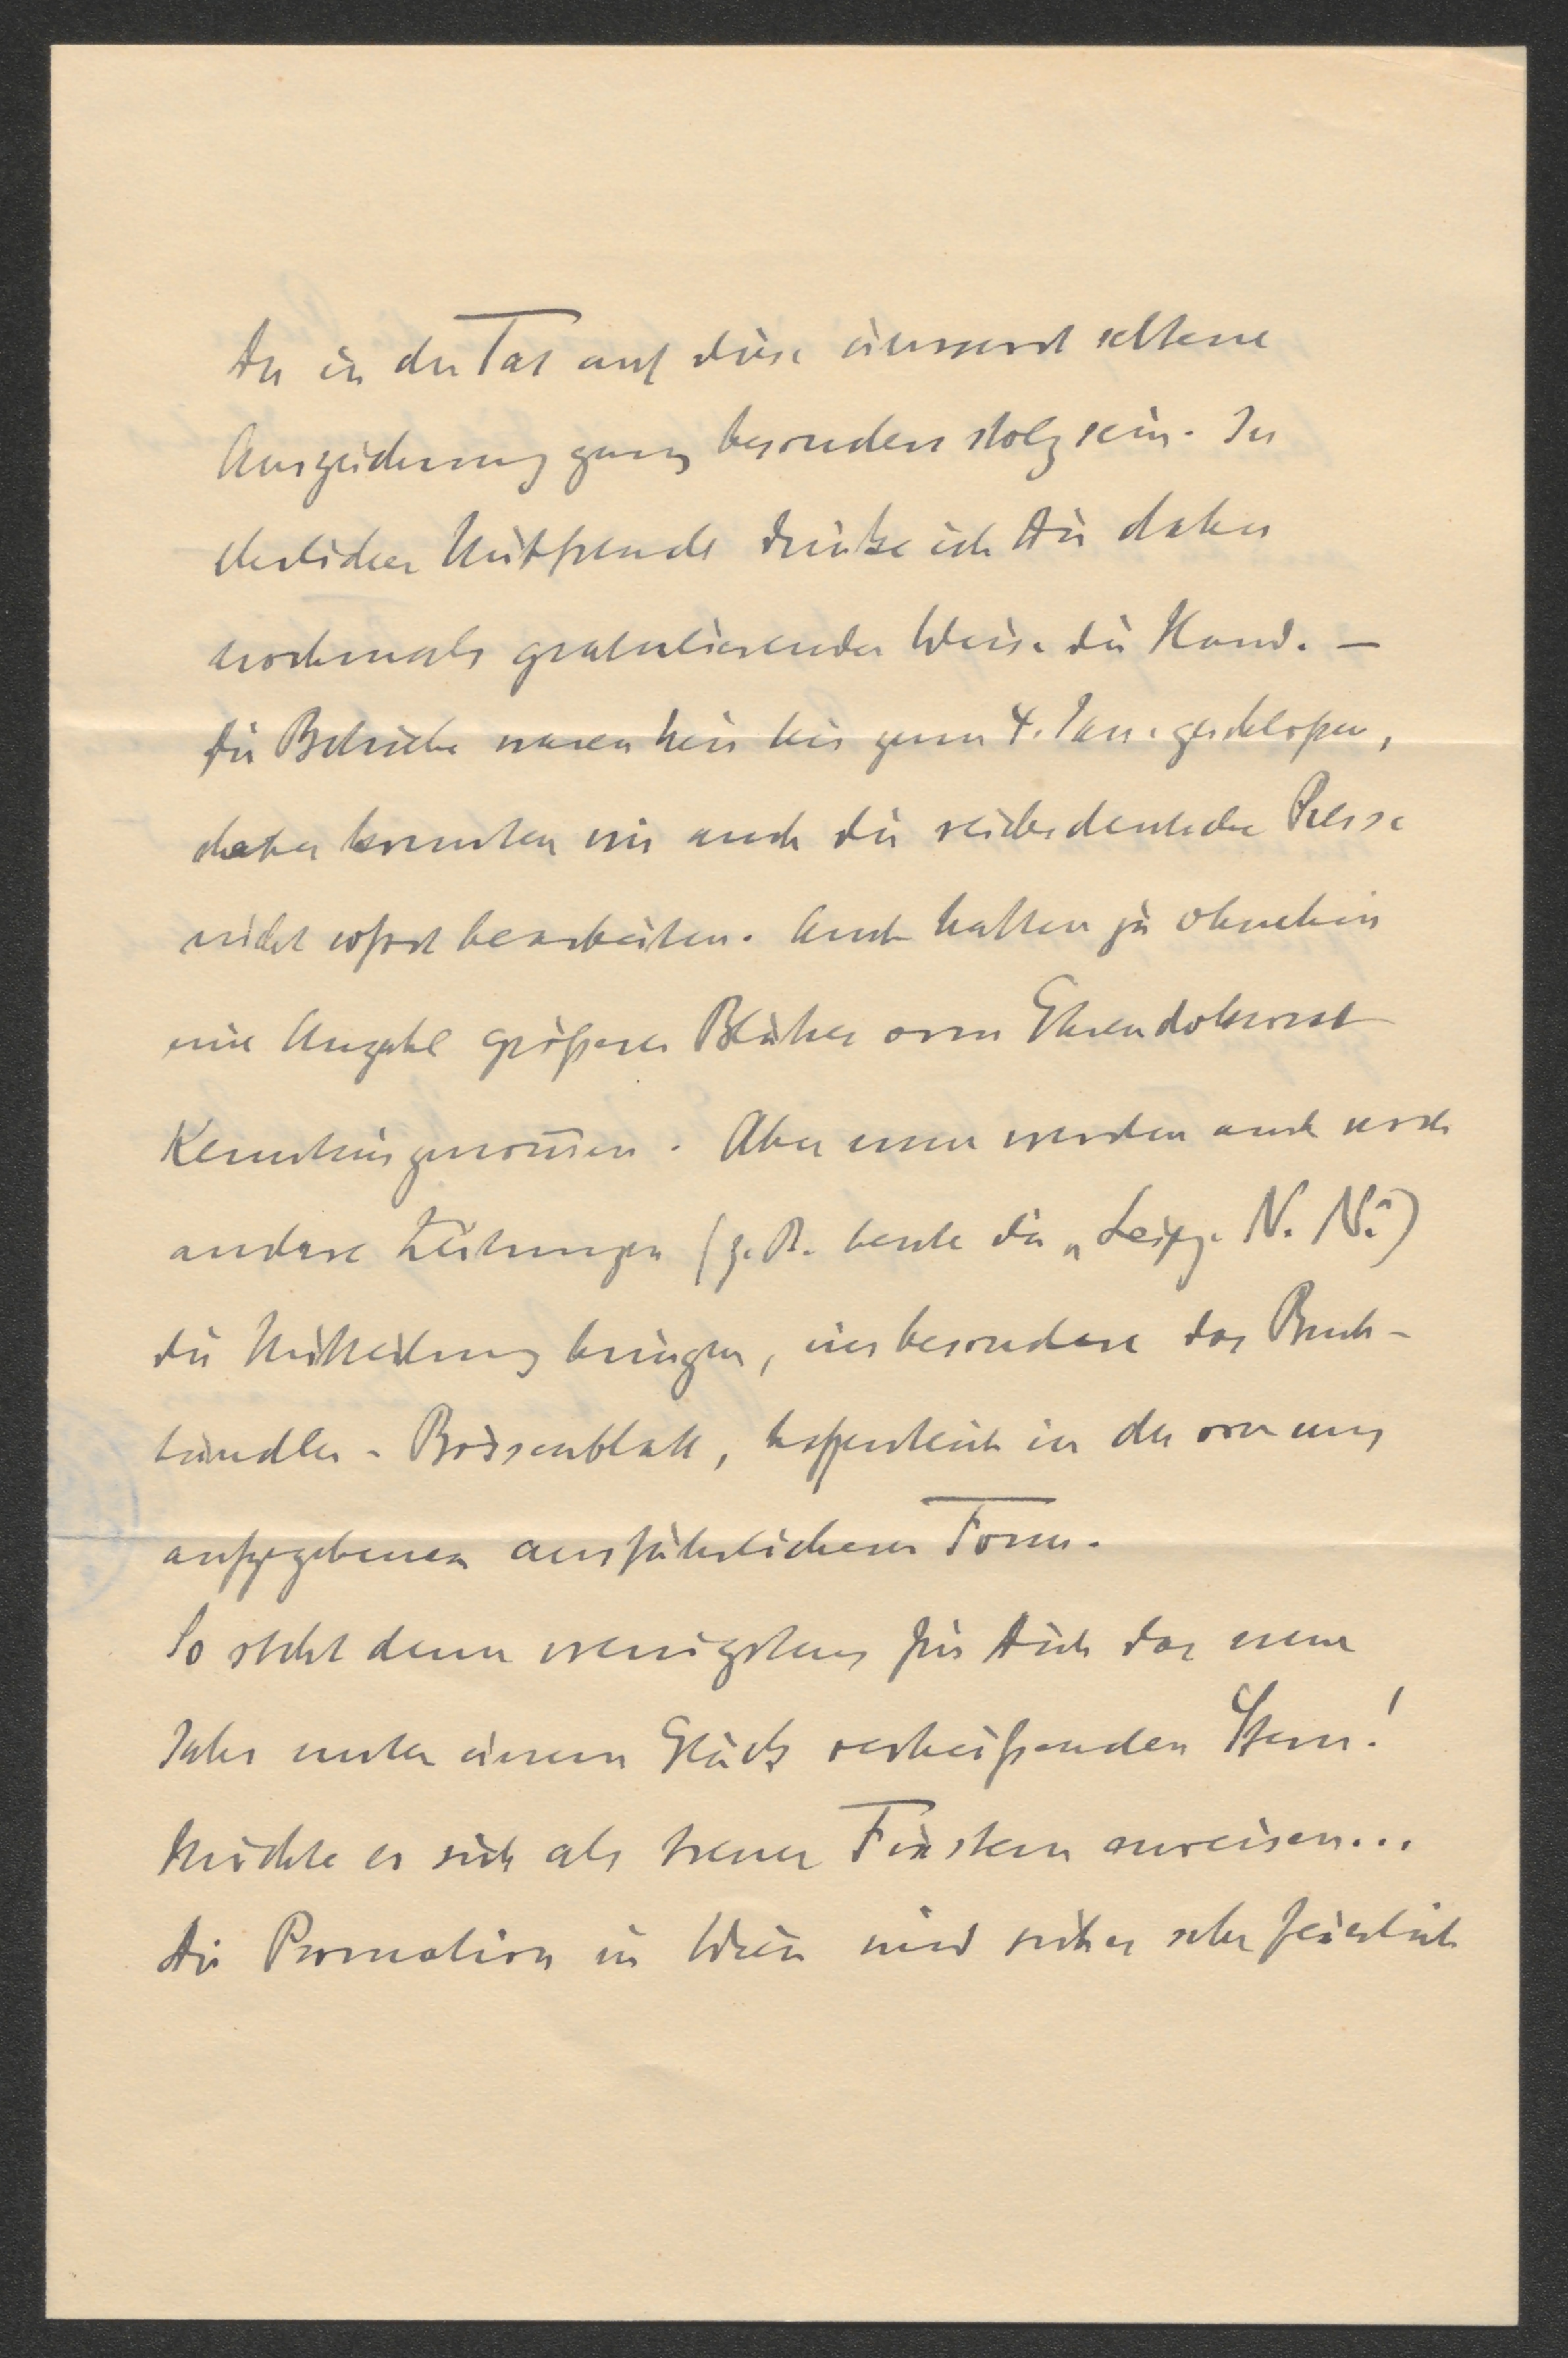 Du in der Tat auf diese äusserst seltene
Auszeichnung ganz besonders stolz sein. In
ehrlicher Mitfreude drücke ich Dir daher
nochmals gratulierender Weise die Hand. –
Die Betriebe waren hier bis zum 4. Jan. geschloßen,
daher konnten wir auch die reichsdeutsche Presse
nicht sofort bearbeiten. Auch hatten ja ohnehin
eine Anzahl größerer Blätter vom Ehrendoktorat
Kenntnis genom̅en. Aber nun werden auch noch
andere Zeitungen (z. B. heute die „Leipz. N. N.“)
die Mitteilung bringen, insbesondere das Buch-
händler-Börsenblatt, hoffentlich in der von uns
aufgegebenen ausführlicheren Form.
So steht denn wenigstens für Dich das neue
Jahr unter einem Glück verheißenden Stern!
Möchte er sich als treuer Fixstern erweisen...
Die Promotion in Wien wird sicher sehr feierlich